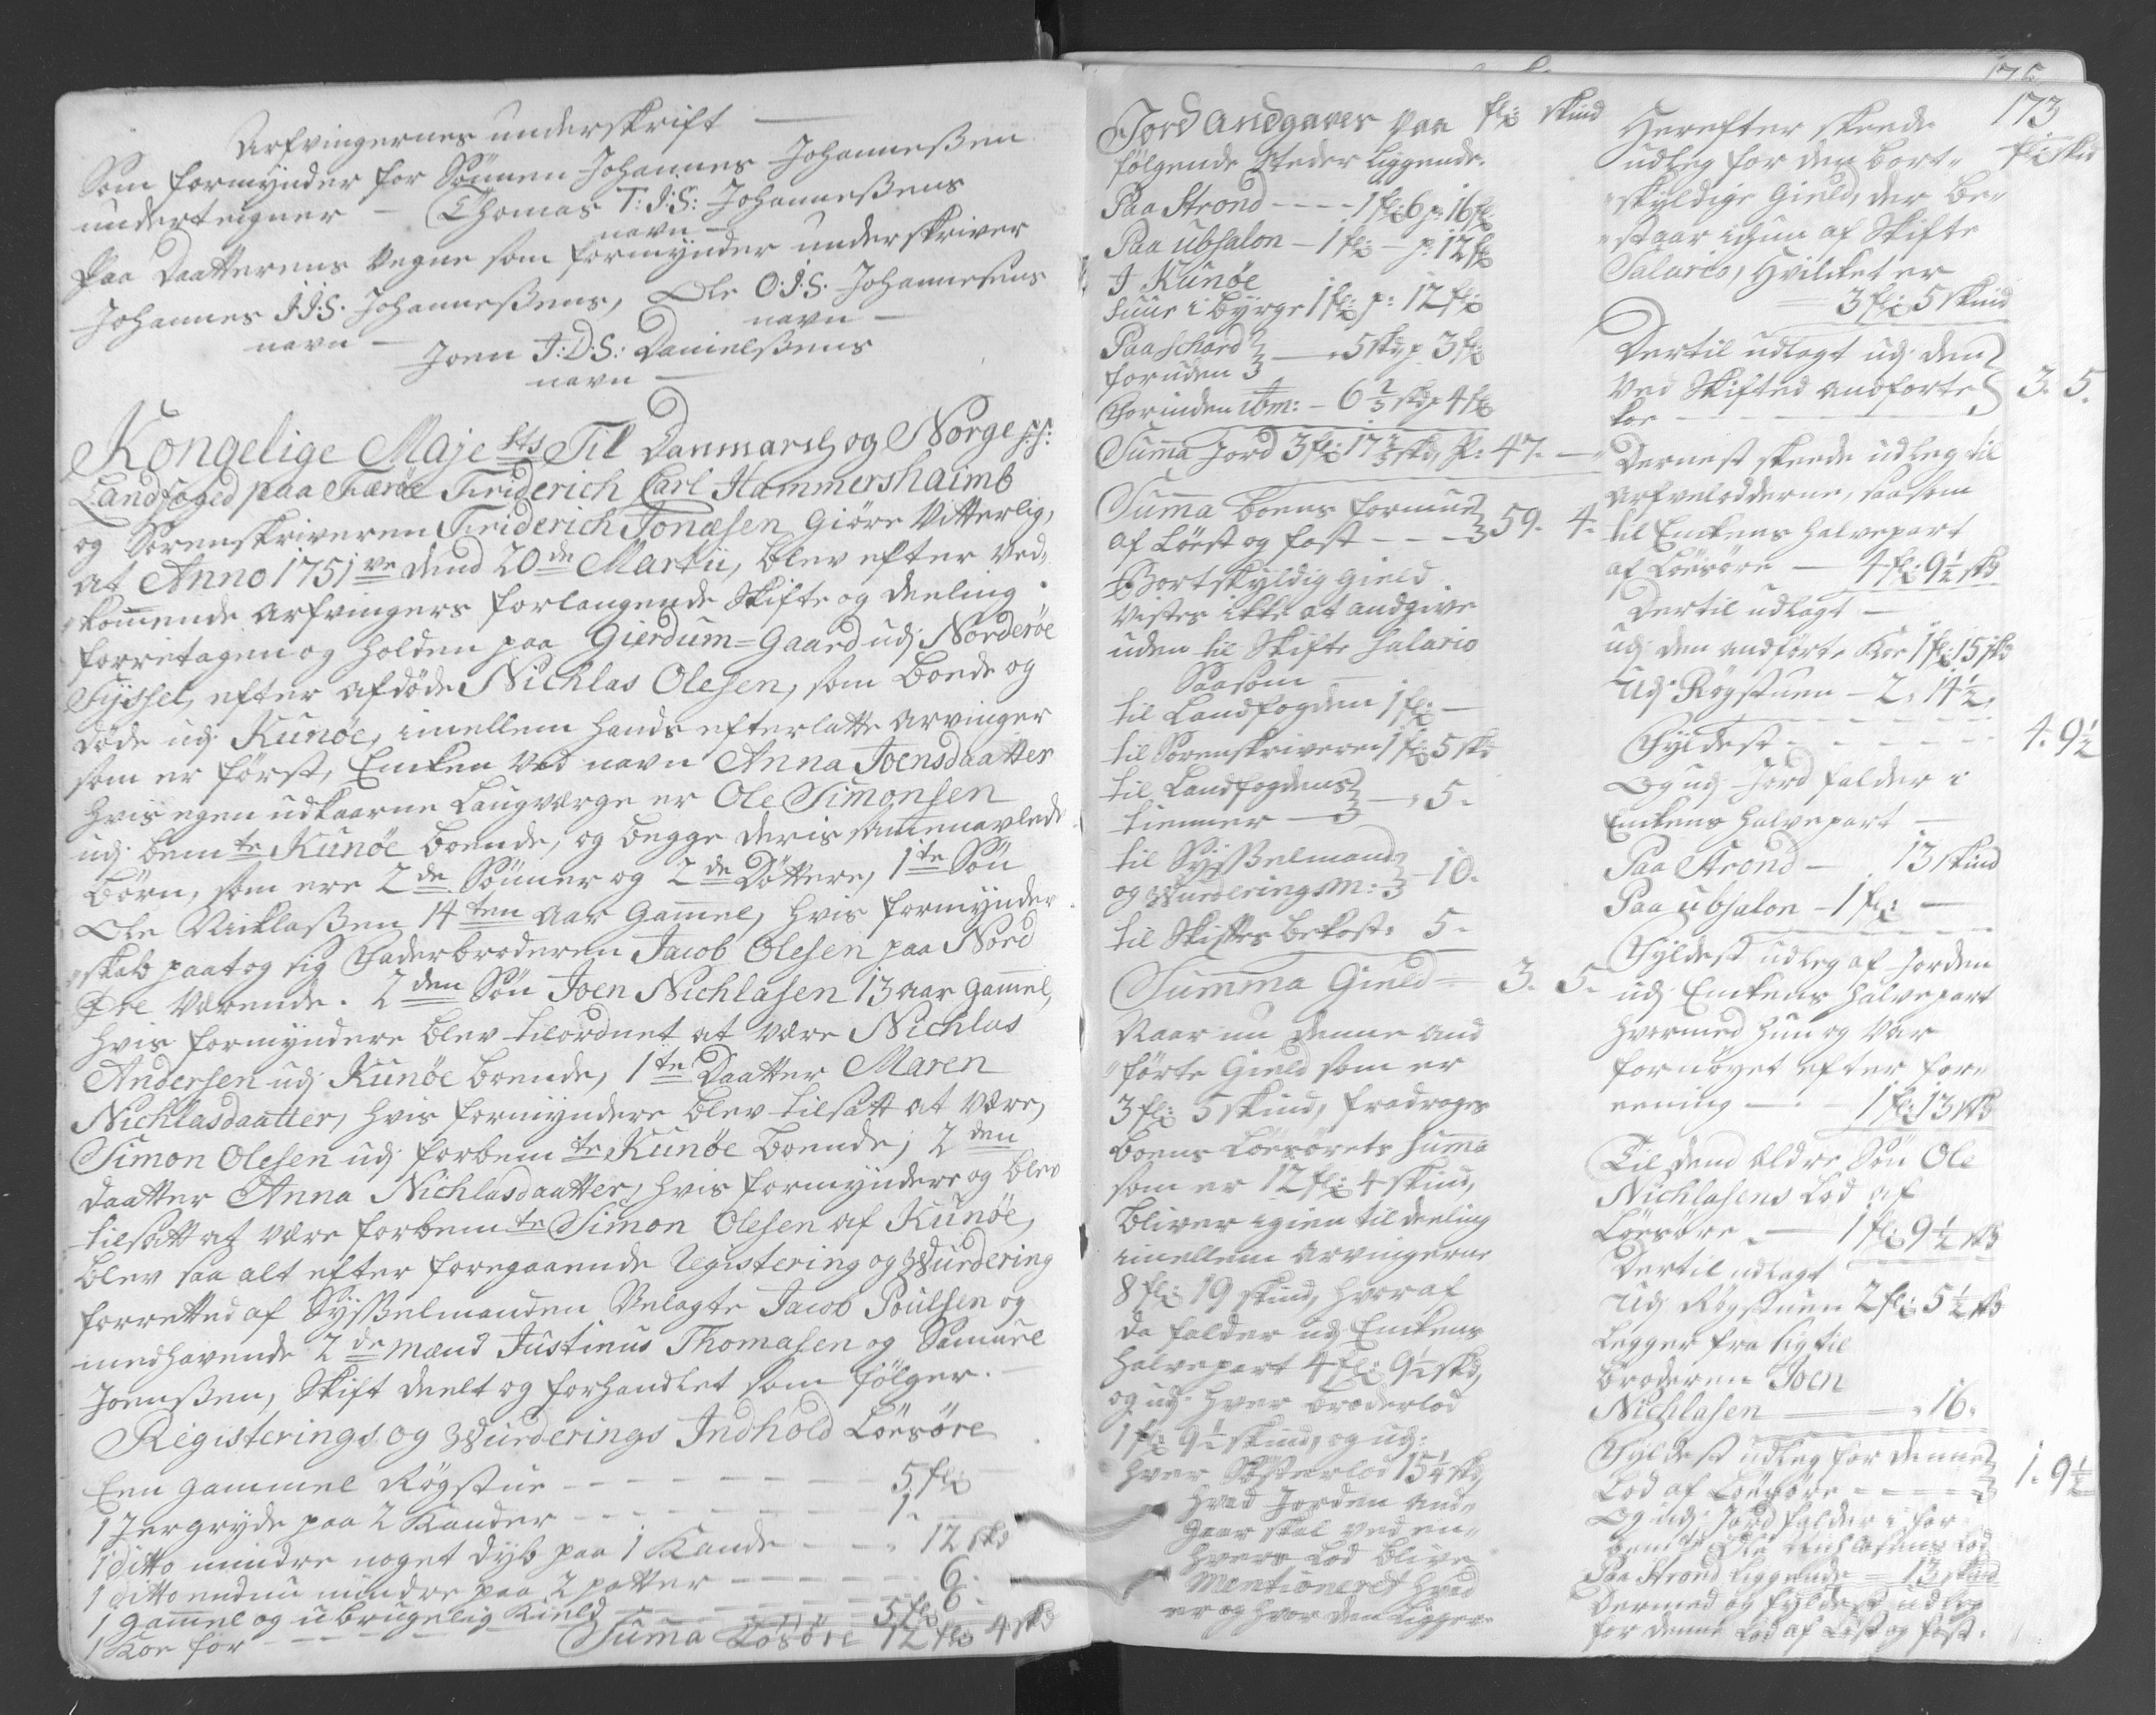 Arfvingernes underskrift —
Som formynder for Sönnen Johannes Johanneßen
undertegner — Thomas T: J:S: Johanneßens
navn —
Paa Daatterens Vegne som formynder underskriver
Johannes J:J:S. Johanneßens, Ole O:J:S. Johannesens
navn — navn —
Joen J:D:S: Danielßens
navn —
Kongelige Maje sts Til Danmarch og Norge p.p:
Landfoged paa Færöe Friderich Carl Hammershaimb
og Sorenskriveren Friderich Jonæsen, Giöre Vitterlig,
at Anno 1751 ve dend 20 de Martii, blev efter Ved-
kommende Arfvingers forlangende Skifte og deeling
forretagen og holden paa Gierdum=Gaard udj Norderöe
Syssel, efter afdöde Nichlas Olesen, som boede og
döde udj Kunöe, imellem hands efterlatte Arvinger
som er först, Enken Ved navn Anna Joensdaatter
hvis egen udkaarne Laugværge er Ole Simonsen
udj bem te Kunöe boende, og begge deris sammenavlede
börn, som ere 2 de Sönner og 2 de Döttere, 1 te Sön
Ole Nicklaßen 14 ten aar Gammel, hvis formynder
skab paatog sig Faderbroderen Jacob Olesen paa Nord
Öre Værende. 2 den Sön Joen Nichlasen 13 aar Gammel,
hvis formyndere blev tilordnet at være Nichlas
Andersen udj Kunöe boende, 1 te Daatter Maren
Nichlasdaatter, hvis formyndere blev tilsatt at være,
Simon Olesen udj forbem te Kunöe boende, 2 den
daatter Anna Nichlasdaatter, hvis formyndere og blev
tilsatt at være forbem te Simon Olesen af Kunöe,
blev saa alt efter foregaaende Registering og Wurdering
forrettet af Sysßelmanden Velagte Jacob Poulsen og
medhavende 2 de mænd Justinus Thomasen og Samuel
Joenßen, Skift deelt og forhandlet som fölger.
Registerings og Wurderings Indhold Lösöre
Een gammel Rögstue — 5 fl:
1 Jergryde paa 2 Kander — 1.
1 ditto mindre noget dyb paa 1 Kande — 12 skd
1 ditto endnu mindre paa 2 potter — 6.
1 gammel og ubrugelig Kield
1 Koe for — 5 fl:
Summa Lösöre 12 fl: 4 skd
Jord andgaves paa fl: skind
fölgende Steder liggende.
Paa Strond - - - - 1 fl: 6 p: 16 fl:
Paa ubsalon — 1 fl: — p: 12 fl:
J Kunöe
huus i byrge 1 fl: p: 12 fl:
Paa schard
foruden — 5 skd p 3 fl:
Forinden ibm: — 6 2/3 skd p 4 fl:
Summa Jord 3 fl: 17 2/3 skd, p: 47. —
Summa boens formue
af Löest og fast - - - 59. 4.
Bortskyldig gield
Vistes ikke at andgive
uden til Skifte salario
Saasom
til Landfogden 1 fl: —
til Sorenskriveren 1 fl: 5 sk:
til Landfogdens
tienner — 5.
til Sysßelmand
og Wurderings M: — 10.
til Skiftes bekost: 5.
Summa Gield — 3. 5.
Naar nu denne and
förte Gield som er
3 fl: 5 skind, fradrages
boens Lösörets summa
som er 12 fl: 4 skind,
bliver igien til deeling
imellem arvingerne
8 fl: 19 skind, hvoraf
da falder udj Enkens
halvepart 4 fl: 9½ skd,
og udj hver broderlod
1 fl: 9½ skind, og udj
hver Sösterlod 15¼ skd,
hvad Jorden and-
gaar skal ved en-
hvers Lod blive
Mentioneret hvad
er og hvor den ligger
173
Herefter skeede fl: skd
udleg for den bort-
skyldige Gield, der be-
staar ickun af Skifte
Salario, hvilcket er
3 fl: 5 skind
Dertil udlagt udj den
ved Skifted andförte
koe — 3. 5.
Dernest skeede udleg til
Arfvelodderne, saasom
til Enkens halvepart
af Lösöre — 4 fl: 9½ skd
Dertil udlagt —
udj den andförte Koe 1 fl: 15 skd
Udj Rögstuen — 2. 14½.
Fyldest - - - - - 4. 9½
Og udj Jord falder i
Enkens halvepart —
Paa Strond — 13 skind
Paa ubsalon — 1 fl: —
Fyldest udleg af Jorden
udj Enkens halvepart
hvormed hun og var
fornöyet efter for-
eening — 1 fl: 13 skd
Til dend ældre Sön Ole
Nichlasens Lod af
Lösöre — 1 fl: 9½ skd
Dertil udlagt
Udj Rögstuen 2 fl: 5½ skd
legger fra sig til
broderen Joen
Nichlasen — 16.
Fyldest udleg for denne
Lod af Lösöre - - - - 1. 9½
Og udj Jord falder i for-
bem te Ole Nichlasens Lod
Paa Strond liggende — 13 skind
Dermed og fyldest udleg
for denne Lod af Löst og fast.